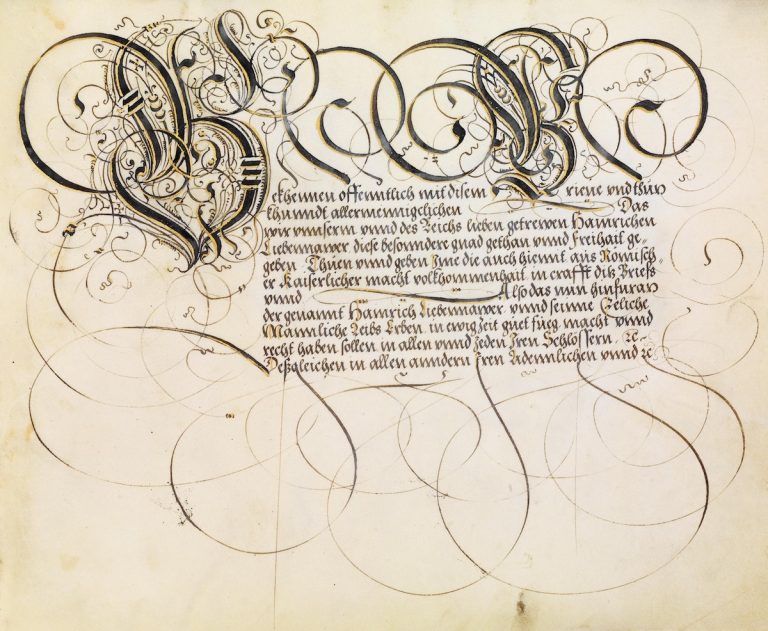 Bekhennen offenntlich mit disem Brieue vnd thun
khundt allermenigelichen Das
wir vnnserm vnnd des Reichs lieben getrewen Hainrichen
Liebenmawer diese besonndere gnad gethan vnnd Freihait ge-
geben Thuen vnnd geben Jme die auch hiemit aus Romisch-
er Kaiserlicher macht volkhommenhait in crafft ditz Briefs
vnnd Also das nun hinfuran
der genannt Hainrich Liebenmawer vnnd seinne Eeliche
Mannliche Leibs Erben in ewig zeit guet fueg macht vnnd
recht haben sollen in allen vnnd yeden Jren Schlössern
Deßgleichen in allen anndern Jren Adennlichen vnnd